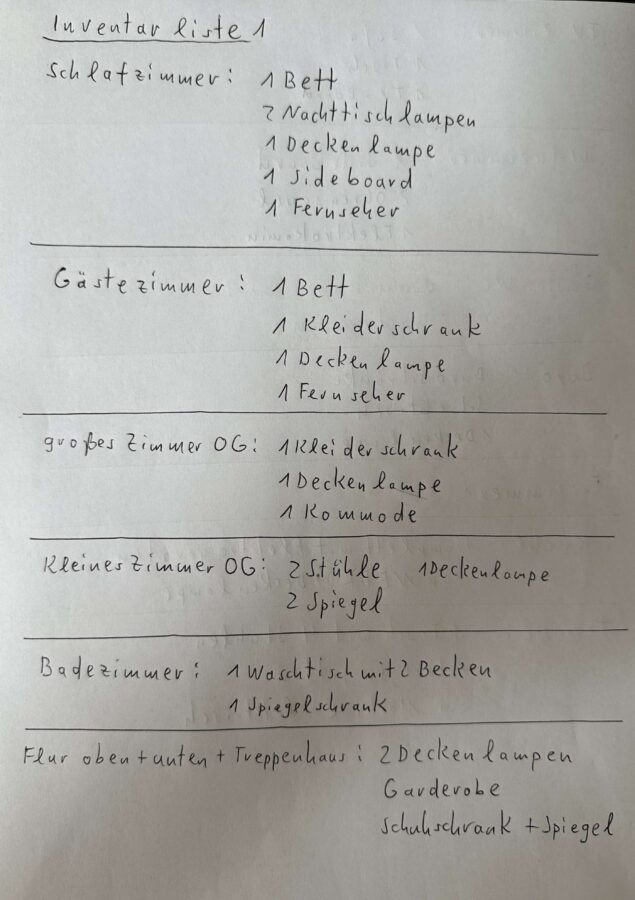 Inventarliste 1
Schlafzimmer: 1 Bett
2 Nachttischlampen
1 Deckenlampe
1 Sideboard
1 Fernseher
Gästezimmer: 1 Bett
1 Kleiderschrank
1 Deckenlampe
1 Fernseher
großes Zimmer OG: 1 Kleiderschrank
1 Deckenlampe
1 Kommode
Kleines Zimmer OG: 2 Stühle 1 Deckenlampe
2 Spiegel
Badezimmer: 1 Waschtisch mit 2 Becken
1 Spiegelschrank
Flur oben + unten + Treppenhaus: 2 Deckenlampen
Garderobe
Schuhschrank + Spiegel